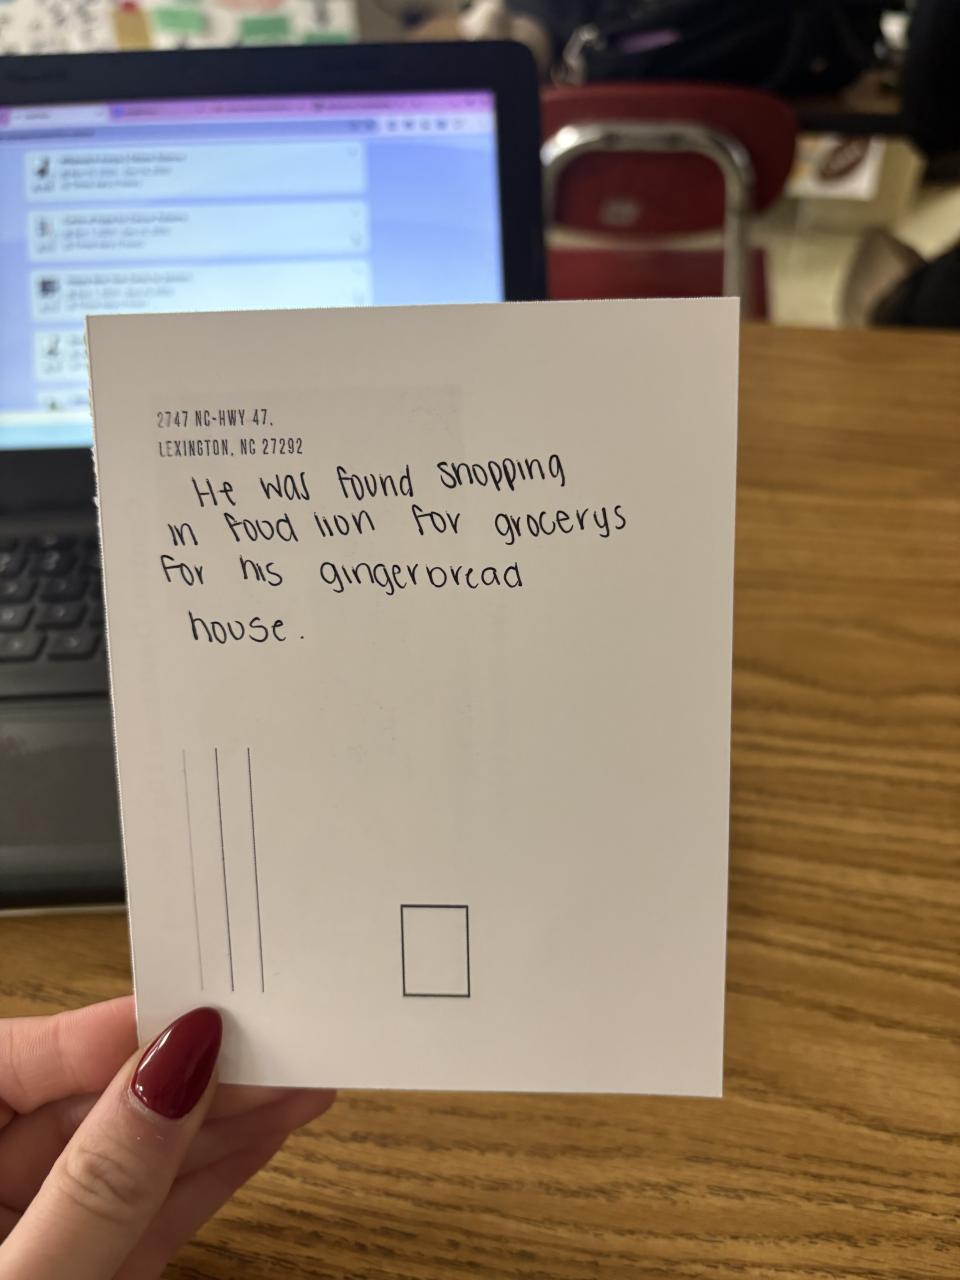 2747 NC-HWY 47,
LEXINGTON, NC 27292
He was found shopping
in food lion for grocerys
for his gingerbread
house.